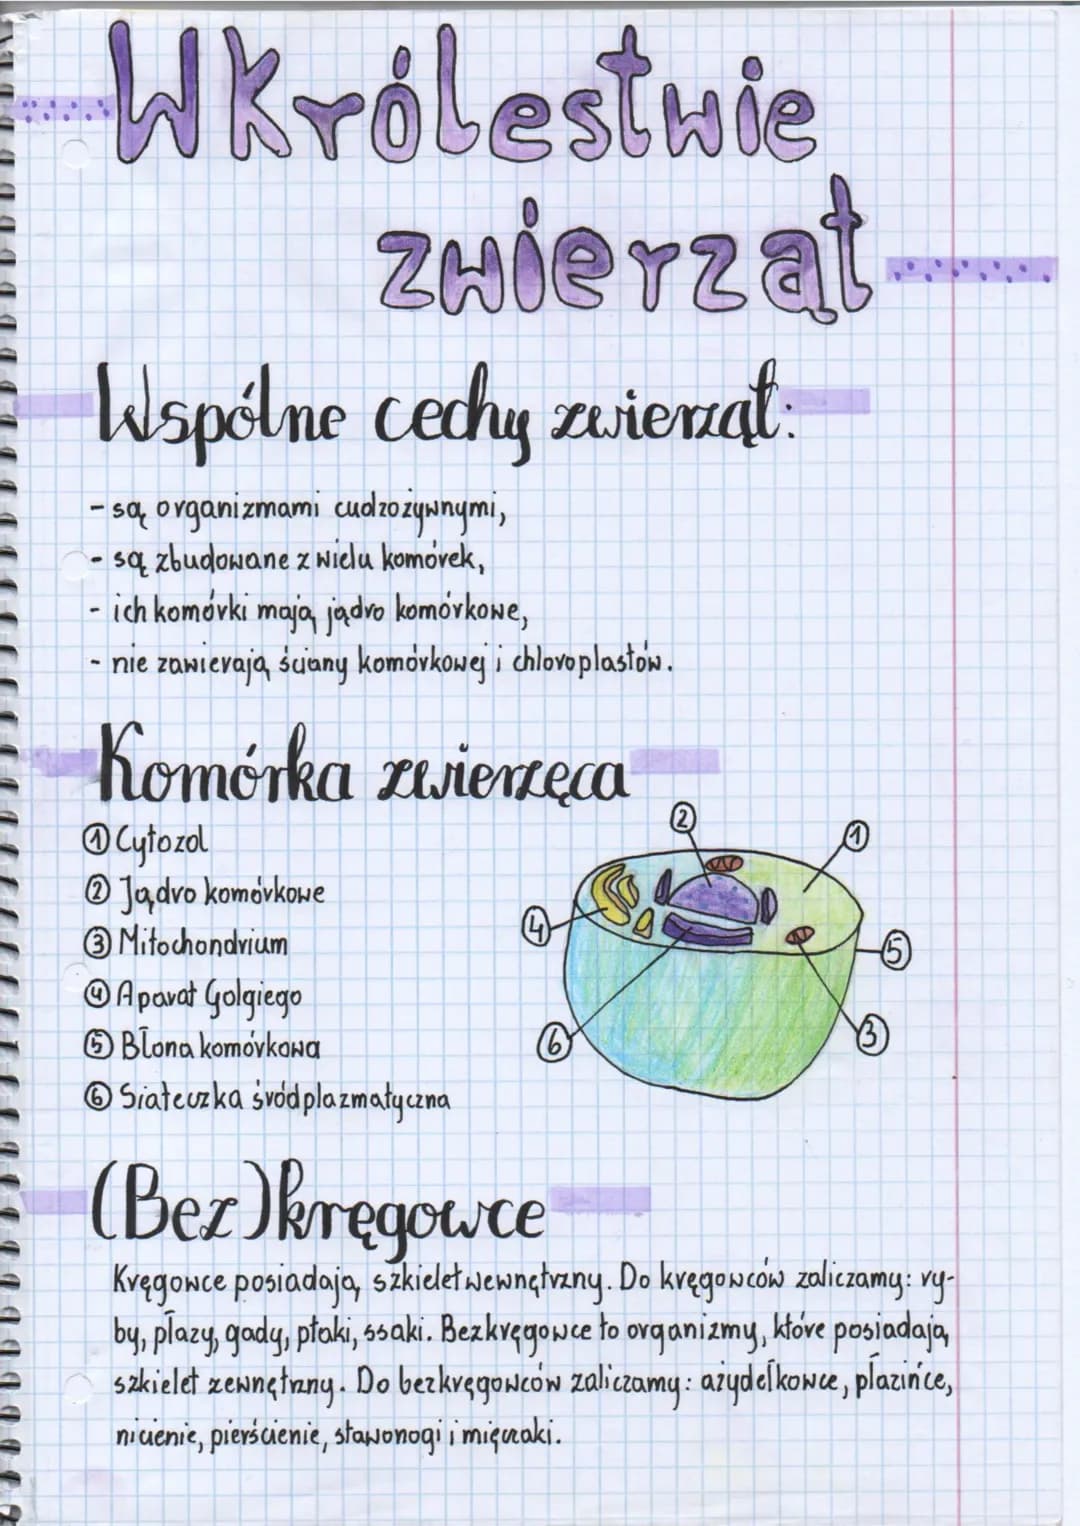 W królestwie
zwierząt
Wspólne cechy zwierząt:
- są organizmami cudzożywnymi,
- są zbudowane z wielu komórek,
- ich komórki mają jądro komórkowe,
- nie zawierają ściany komórkowej i chloroplastów.
Komórka zwierzęca
① Cytozol
② Jądro komórkowe
③ Mitochondrium
④ Aparat Golgiego
⑤ Błona komórkowa
⑥ Siateczka śródplazmatyczna
2
1
4
5
3
6
(Bez)kręgowce
Kręgowce posiadają szkielet wewnętrzny. Do kręgowców zaliczamy: ry-
by, płazy, gady, ptaki, ssaki. Bezkręgowce to organizmy, które posiadają
szkielet zewnętrzny. Do bezkręgowców zaliczamy: ażydełkowce, płazińce,
nicienie, pierścienie, stawonogi i mięczaki.